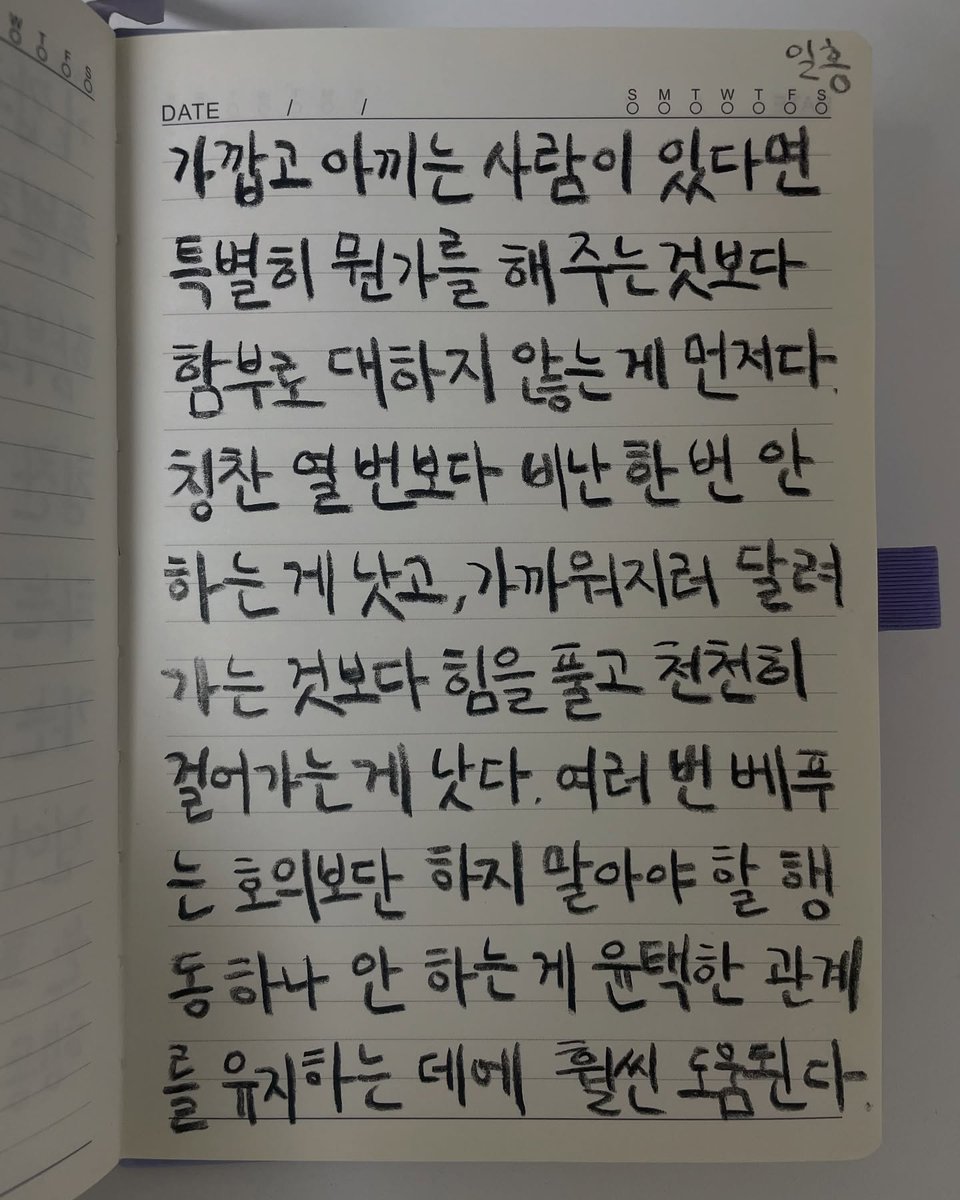 일홍
DATE / /
S M T W T F S
가깝고 아끼는 사람이 있다면
특별히 뭔가를 해 주는것보다
함부로 대하지 않는게 먼저다.
칭찬 열 번보다 비난 한 번 안
하는 게 낫고, 가까워지려 달려
가는 것보다 힘을 풀고 천천히
걸어가는 게 낫다. 여러 번 베푸
는 호의보단 하지 말아야 할 행
동 하나 안 하는 게 윤택한 관계
를 유지하는 데에 훨씬 도움된다.